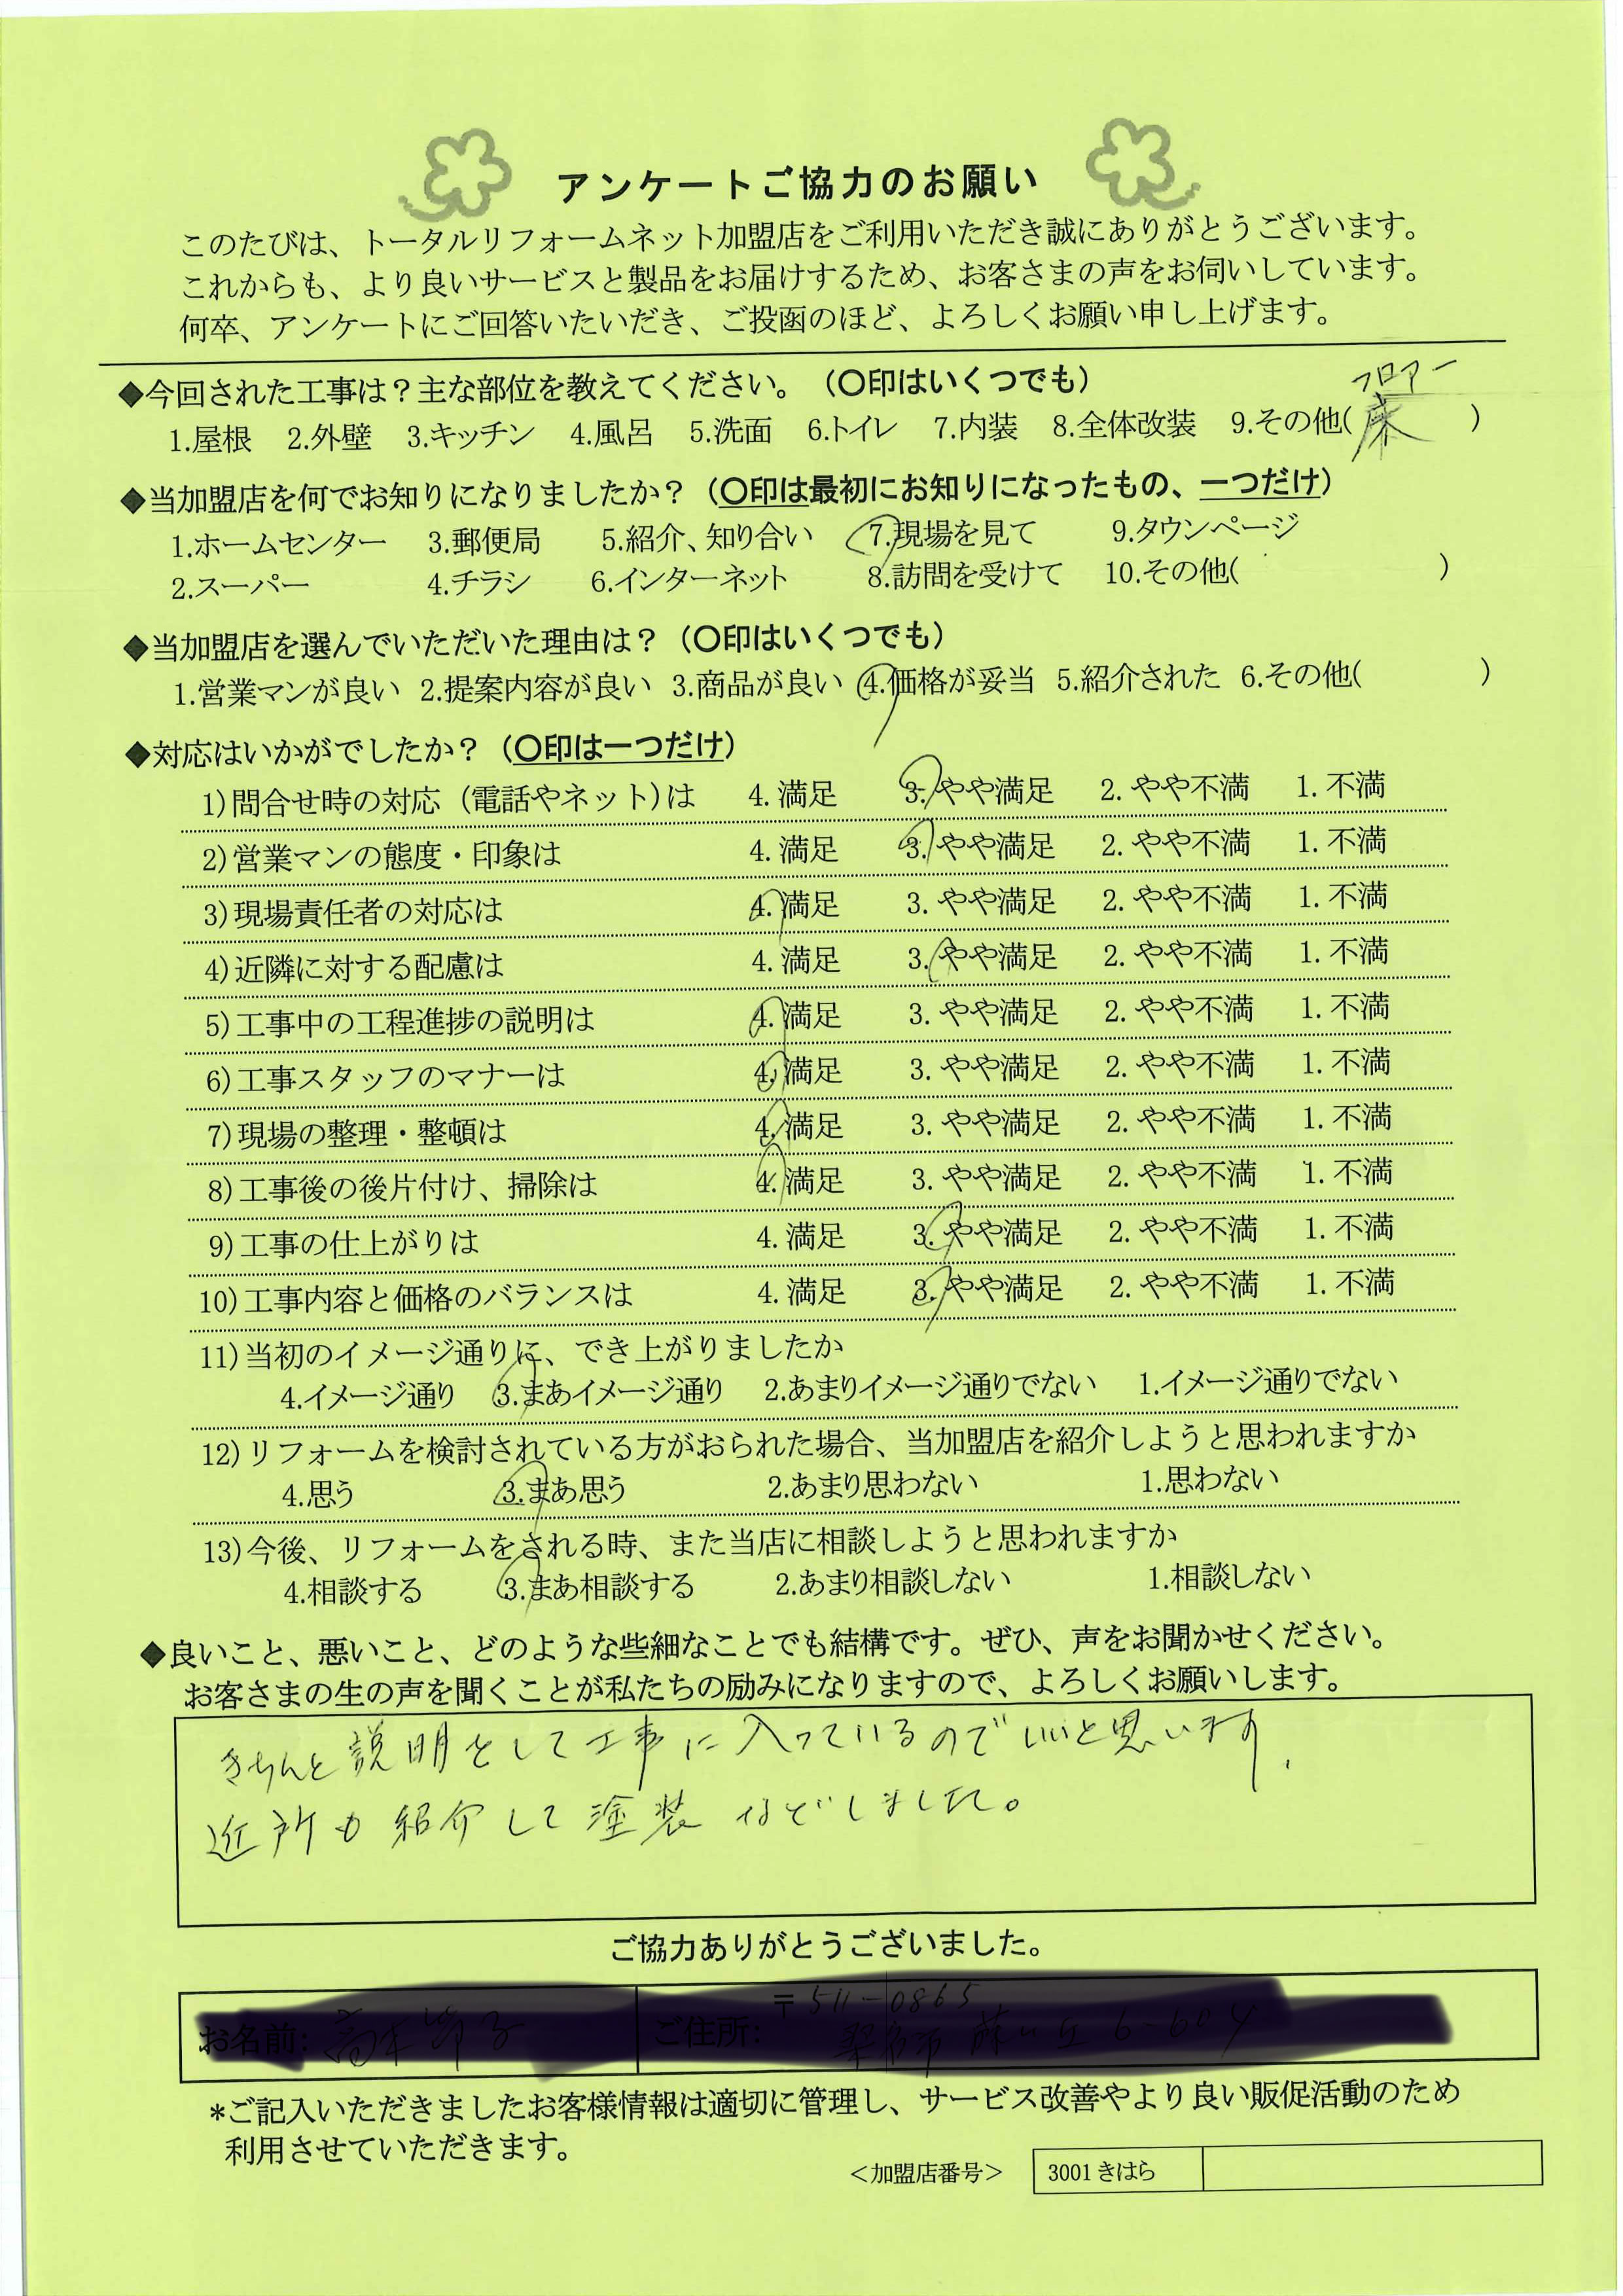 アンケートご協力のお願い
このたびは、トータルリフォームネット加盟店をご利用いただき誠にありがとうございます。
これからも、より良いサービスと製品をお届けするため、お客さまの声をお伺いしています。
何卒、アンケートにご回答いたいだき、ご投函のほど、よろしくお願い申し上げます。
◆今回された工事は？主な部位を教えてください。（〇印はいくつでも）
フロアー
1.屋根 2.外壁 3.キッチン 4.風呂 5.洗面 6.トイレ 7.内装 8.全体改装 9.その他(床)
◆当加盟店を何でお知りになりましたか？（〇印は最初にお知りになったもの、一つだけ）
1.ホームセンター 3.郵便局 5.紹介、知り合い 7.現場を見て 9.タウンページ
2.スーパー 4.チラシ 6.インターネット 8.訪問を受けて 10.その他( )
◆当加盟店を選んでいただいた理由は？（〇印はいくつでも）
1.営業マンが良い 2.提案内容が良い 3.商品が良い 4.価格が妥当 5.紹介された 6.その他( )
◆対応はいかがでしたか？（〇印は一つだけ）
1)問合せ時の対応（電話やネット)は 4. 満足 3. やや満足 2. やや不満 1. 不満
2)営業マンの態度・印象は 4. 満足 3. やや満足 2. やや不満 1. 不満
3)現場責任者の対応は 4. 満足 3. やや満足 2. やや不満 1. 不満
4)近隣に対する配慮は 4. 満足 3. やや満足 2. やや不満 1. 不満
5)工事中の工程進捗の説明は 4. 満足 3. やや満足 2. やや不満 1. 不満
6)工事スタッフのマナーは 4. 満足 3. やや満足 2. やや不満 1. 不満
7)現場の整理・整頓は 4. 満足 3. やや満足 2. やや不満 1. 不満
8)工事後の後片付け、掃除は 4. 満足 3. やや満足 2. やや不満 1. 不満
9)工事の仕上がりは 4. 満足 3. やや満足 2. やや不満 1. 不満
10)工事内容と価格のバランスは 4. 満足 3. やや満足 2. やや不満 1. 不満
11)当初のイメージ通りに、でき上がりましたか
4.イメージ通り 3.まあイメージ通り 2.あまりイメージ通りでない 1.イメージ通りでない
12)リフォームを検討されている方がおられた場合、当加盟店を紹介しようと思われますか
4.思う 3.まあ思う 2.あまり思わない 1.思わない
13)今後、リフォームをされる時、また当店に相談しようと思われますか
4.相談する 3.まあ相談する 2.あまり相談しない 1.相談しない
◆良いこと、悪いこと、どのような些細なことでも結構です。ぜひ、声をお聞かせください。
お客さまの生の声を聞くことが私たちの励みになりますので、よろしくお願いします。
きちんと説明をして工事に入っているのでいいと思います、
近所も紹介して塗装などしました。
ご協力ありがとうございました。
お名前: ご住所:
*ご記入いただきましたお客様情報は適切に管理し、サービス改善やより良い販促活動のため
利用させていただきます。
＜加盟店番号＞ 3001 きはら